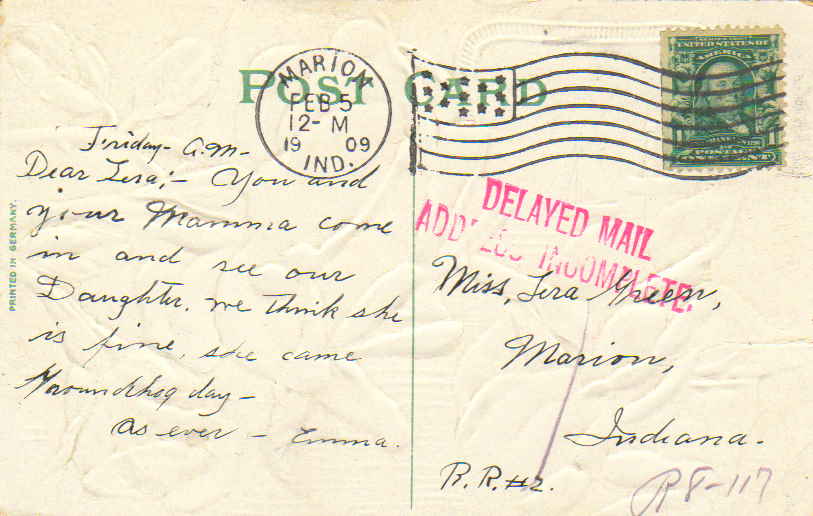 POST CARD
MARION
FEB 5
12-M
1909
IND.
UNITED STATES OF
AMERICA
Friday- A.M-
Dear Lera;- You and
your Mamma come
in and see our
Daughter. we think she
is fine, she came
Groundhog day-
As ever - Emma.
PRINTED IN GERMANY.
DELAYED MAIL
ADDRESS INCOMPLETE.
Miss, Lera Green,
Marion,
Indiana.
R. R. #2.
R8-117